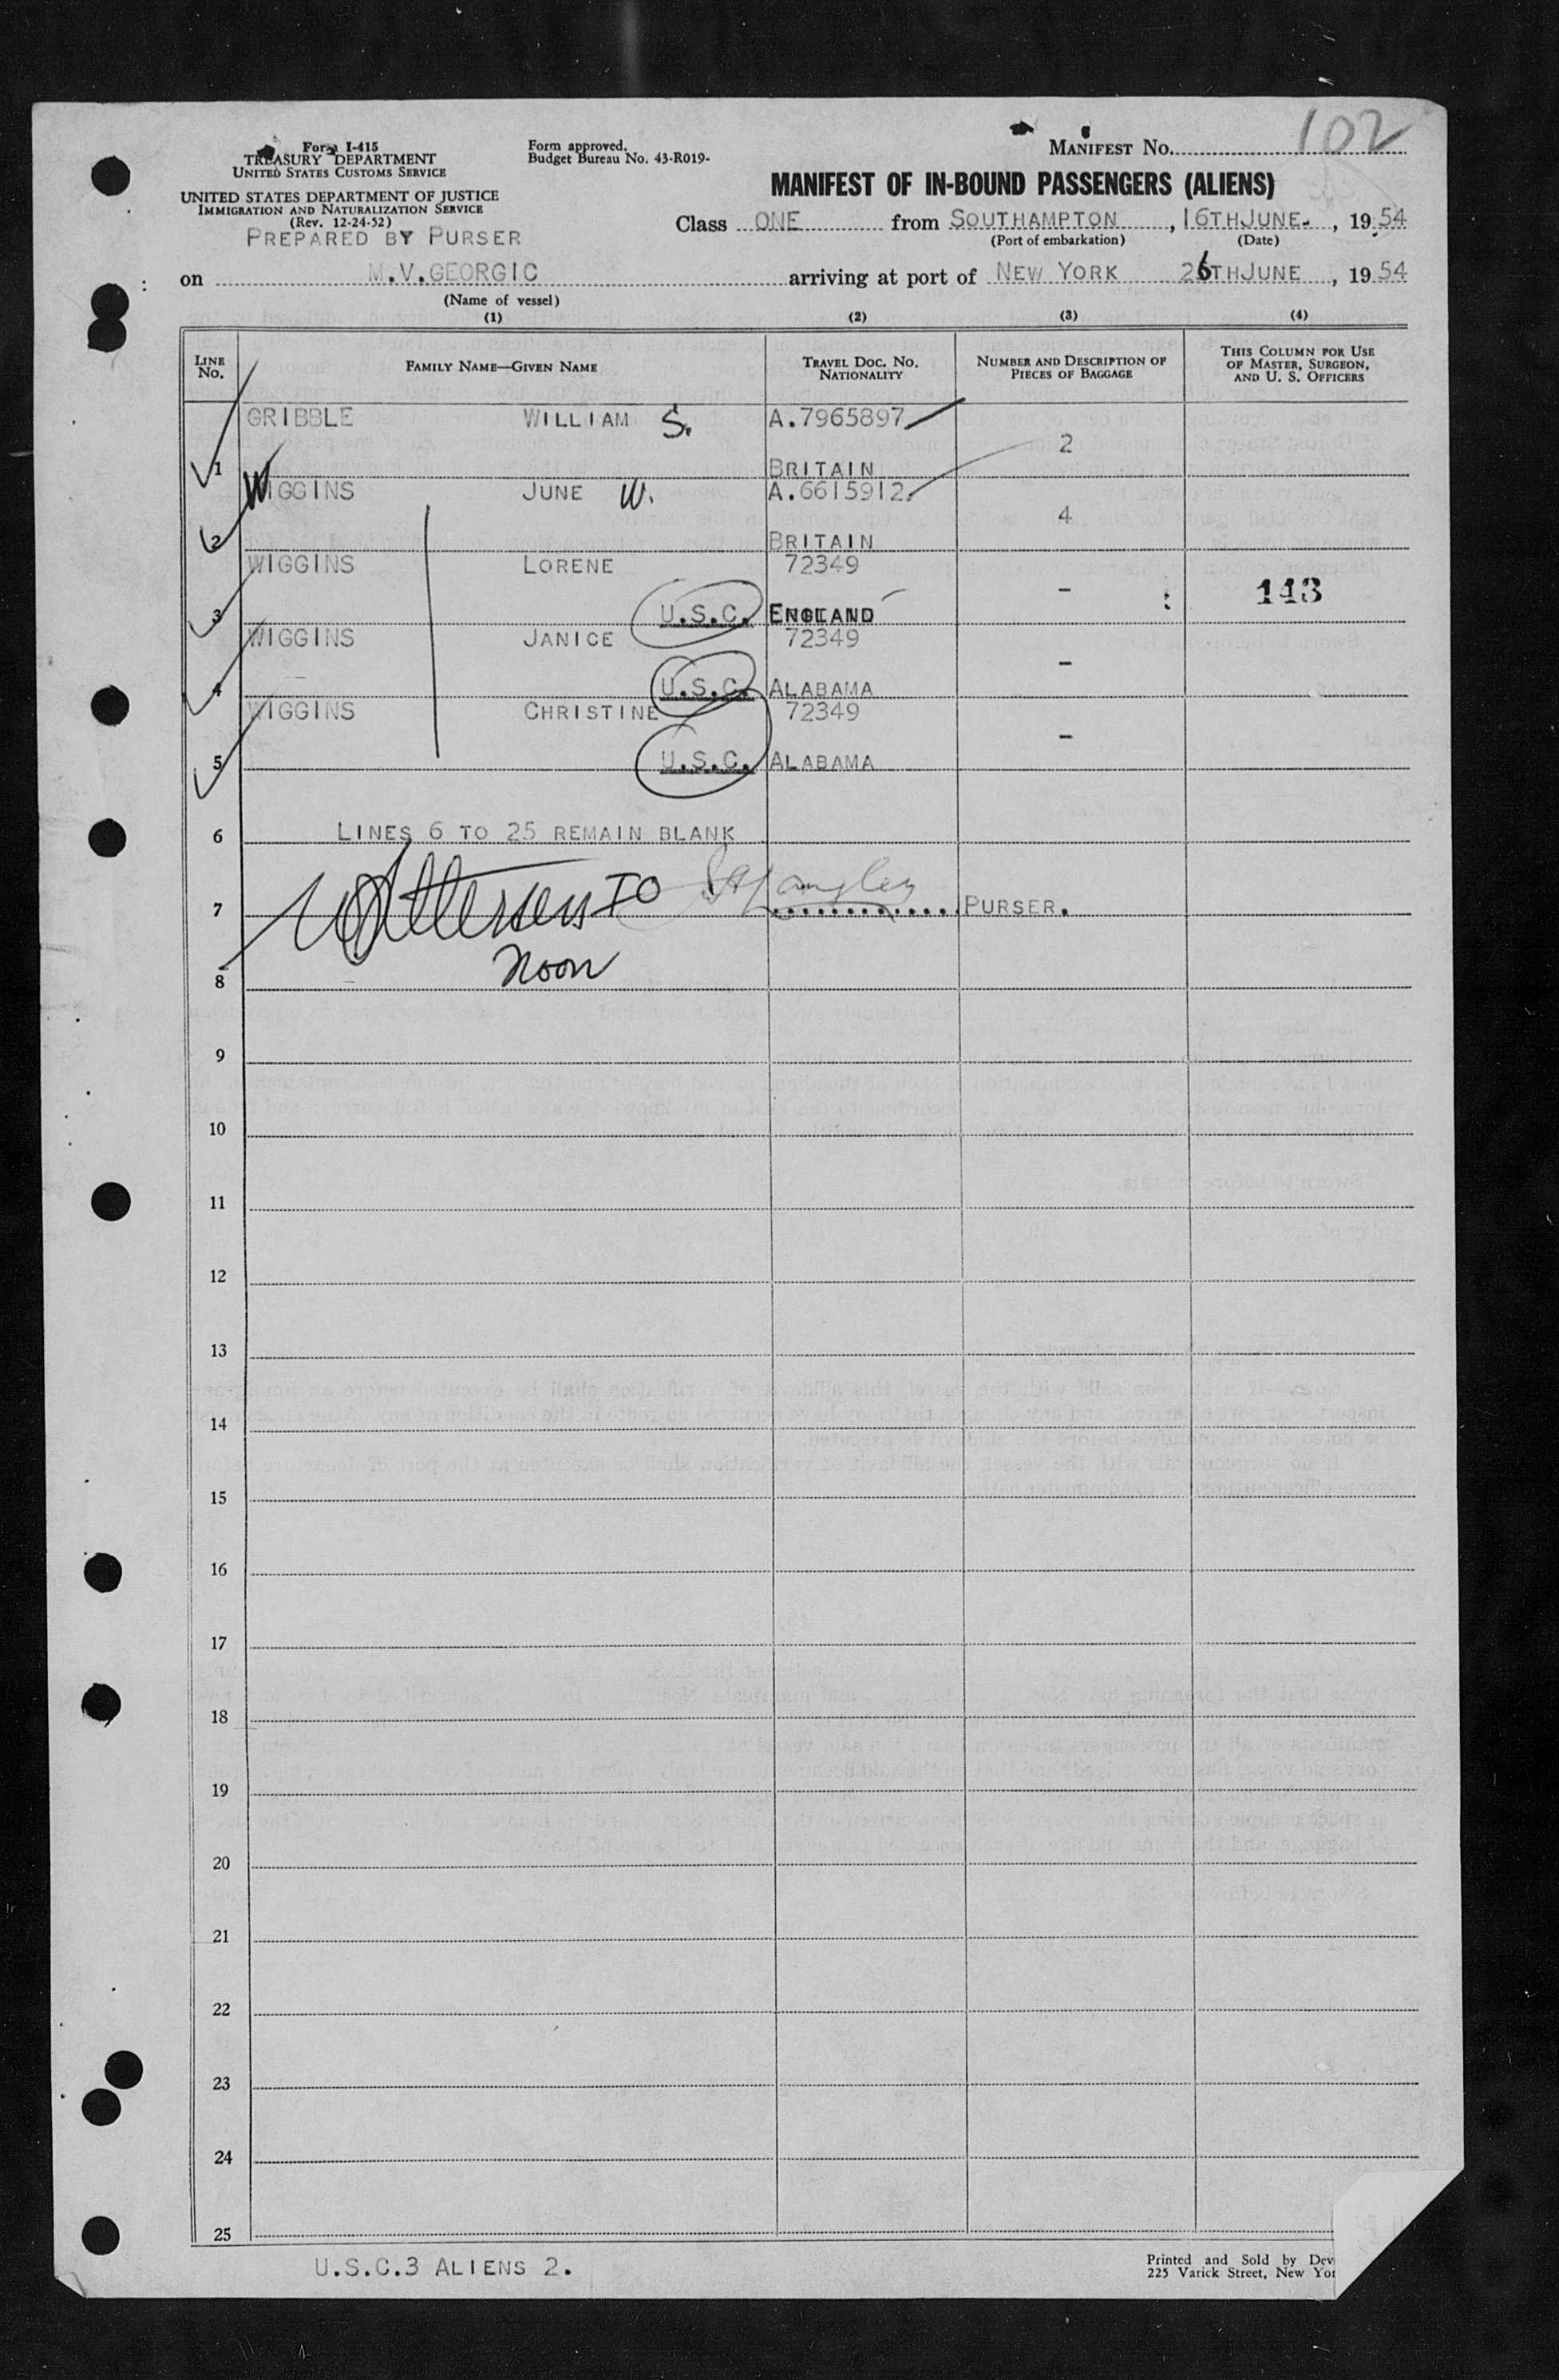 Form I-415
TREASURY DEPARTMENT
UNITED STATES CUSTOMS SERVICE
UNITED STATES DEPARTMENT OF JUSTICE
IMMIGRATION AND NATURALIZATION SERVICE
(Rev. 12-24-52)
PREPARED BY PURSER
Form approved.
Budget Bureau No. 43-R019-
MANIFEST No. 102
MANIFEST OF IN-BOUND PASSENGERS (ALIENS)
Class ONE from SOUTHAMPTON, 16THJUNE., 1954
(Port of embarkation) (Date)
on M.V.GEORGIC arriving at port of NEW YORK 26THJUNE, 1954
(Name of vessel)
(1) (2) (3) (4)
LINE No. FAMILY NAME—GIVEN NAME TRAVEL DOC. NO. NATIONALITY NUMBER AND DESCRIPTION OF PIECES OF BAGGAGE THIS COLUMN FOR USE OF MASTER, SURGEON, AND U. S. OFFICERS
GRIBBLE WILLIAM S. A.7965897
2
1 BRITAIN
WIGGINS JUNE W. A.6615912.
4
2 BRITAIN
WIGGINS LORENE 72349
- 143
3 U.S.C. ENGLAND
WIGGINS JANICE 72349
-
4 U.S.C. ALABAMA
WIGGINS CHRISTINE 72349
-
5 U.S.C. ALABAMA
6 LINES 6 TO 25 REMAIN BLANK
7 IO Langley PURSER.
Noon
8
9
10
11
12
13
14
15
16
17
18
19
20
21
22
23
24
25
U.S.C.3 ALIENS 2.
Printed and Sold by Dev
225 Varick Street, New Yor